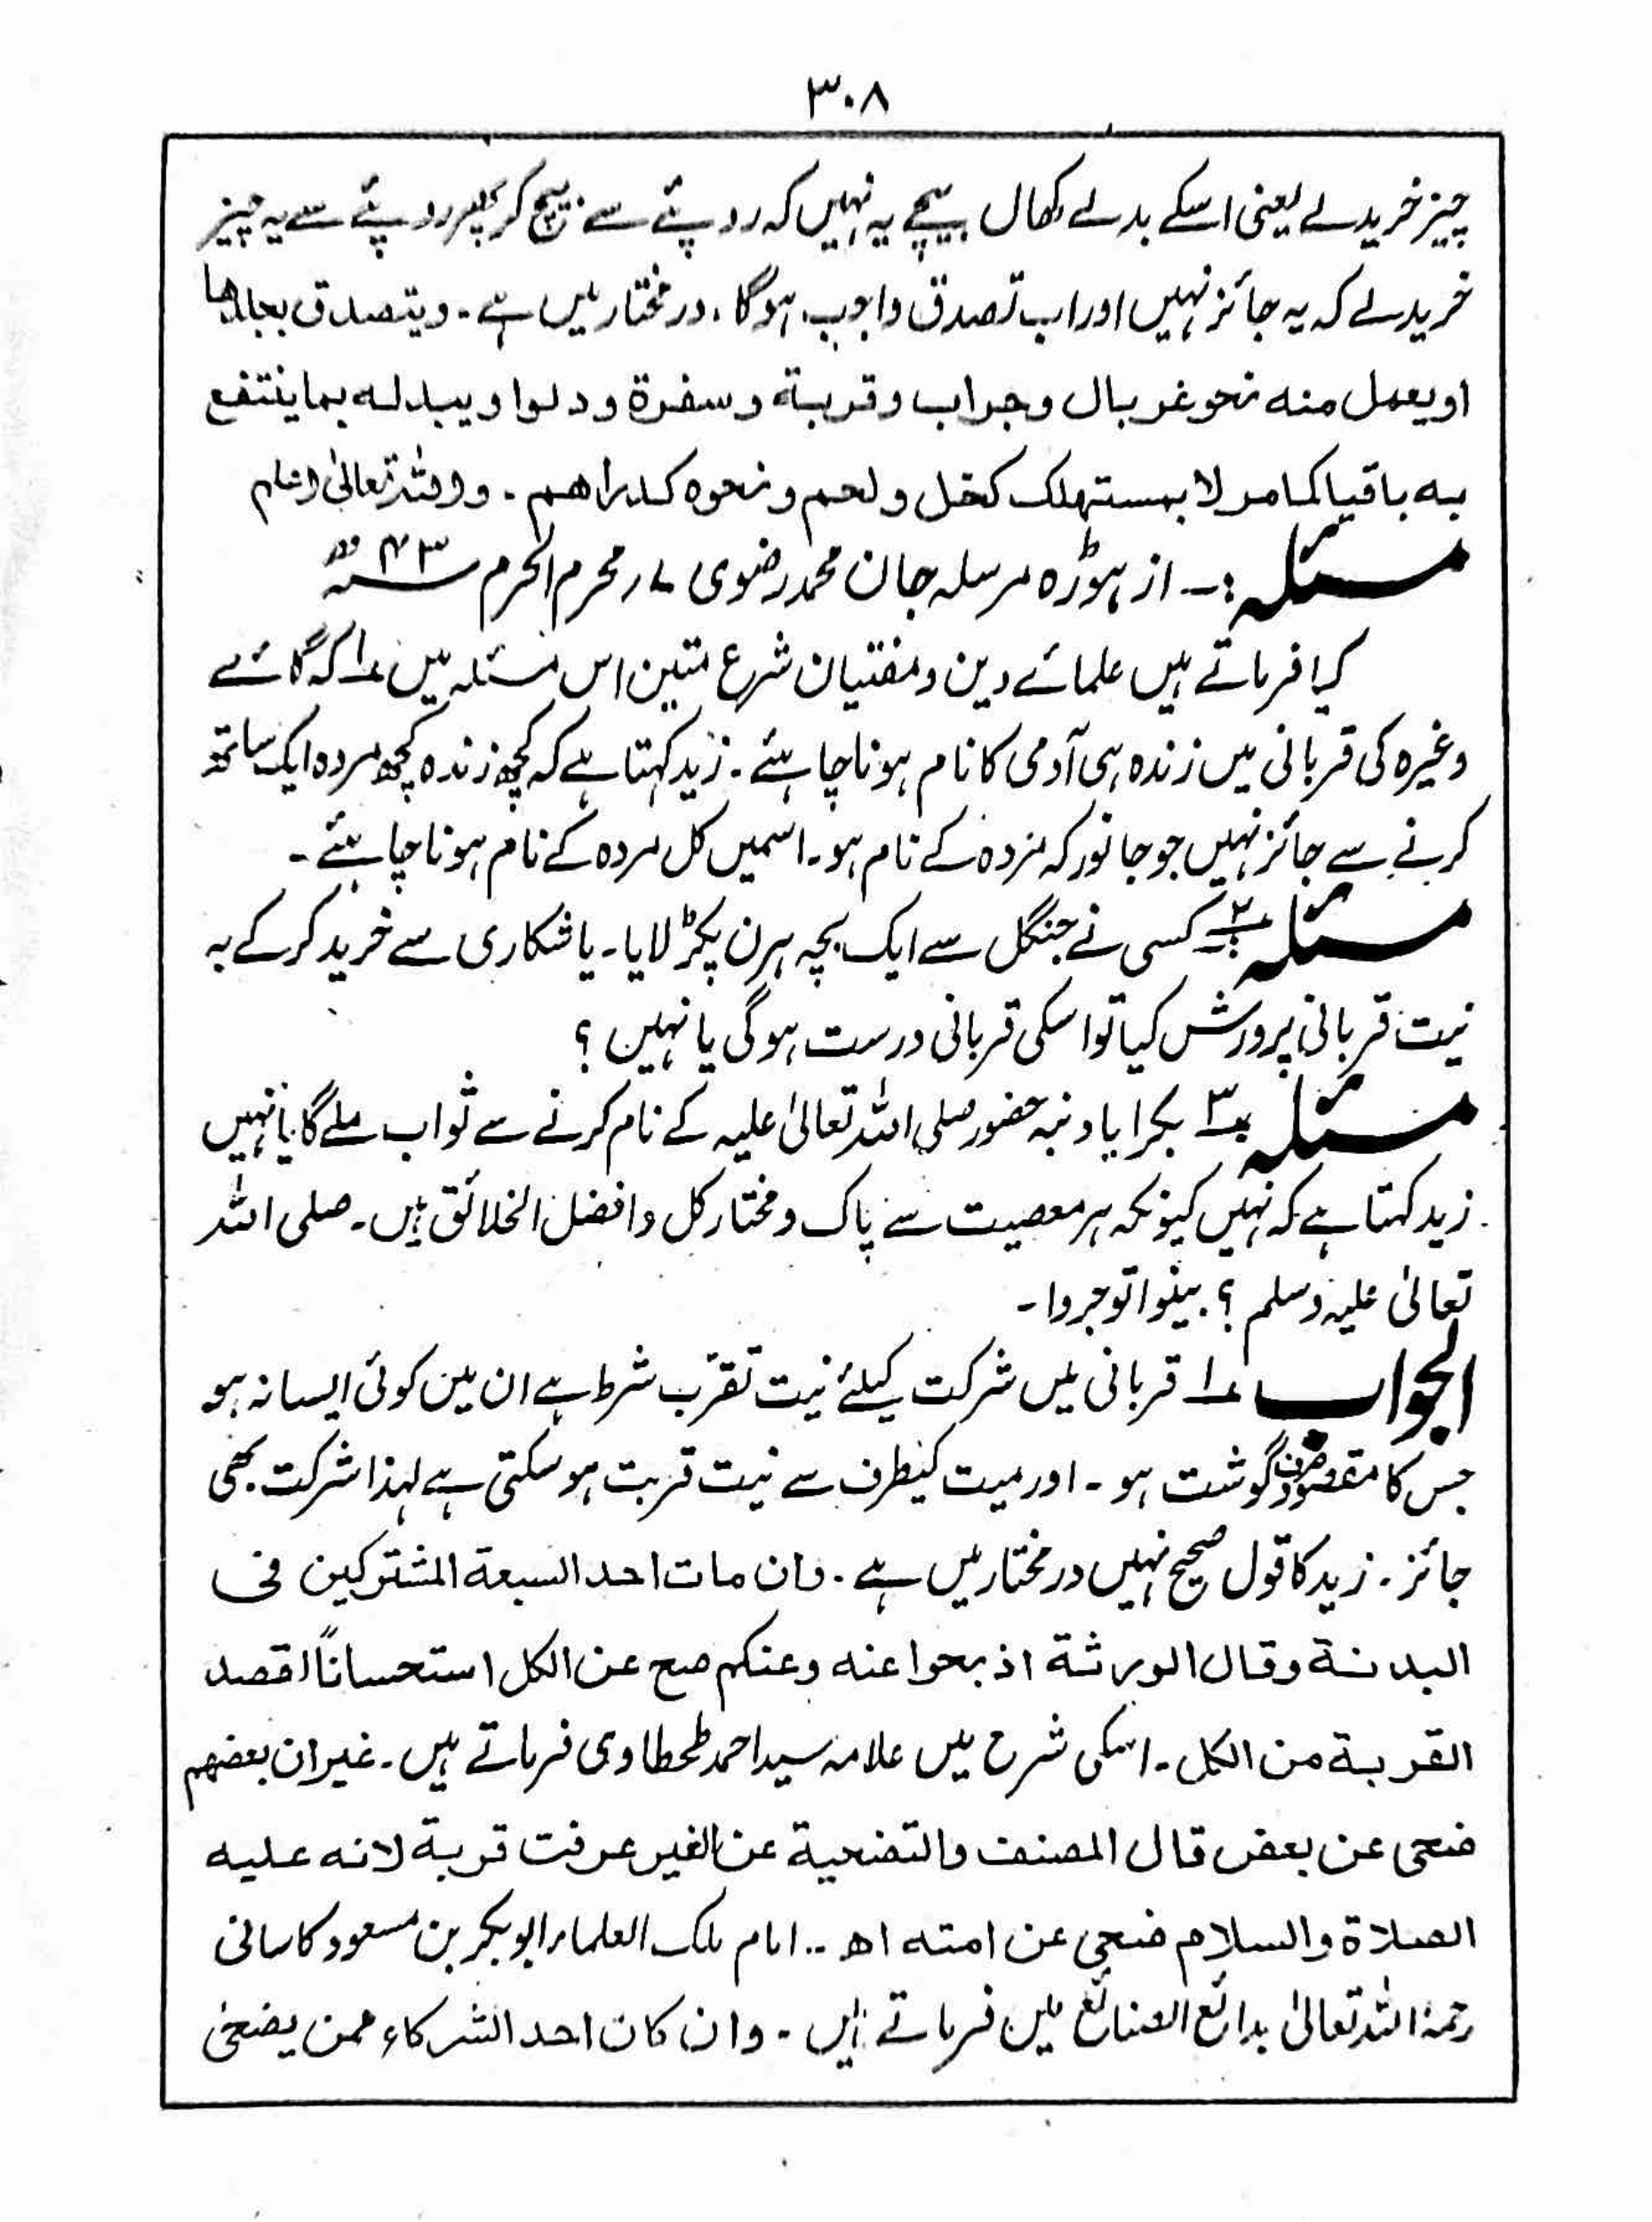 ۳۰۸
چیز خریدلے یعنی اسکے بدلے کھال بیچے یہ نہیں کہ روپئے سے بیچ کر پھر روپئے سے یہ چیز
خریدلے کہ یہ جائز نہیں اور اب تصدق واجب ہوگا، درمختار میں ہے۔ ویتصدق بجلدھا
او یعمل منه نحو غربال وجراب وقربة وسفرة ودلو او یبدله بما ینتفع
به باقیا کما مر لا بمستهلک کخل ولحم ونحوه کدراھم۔ واللہ تعالیٰ اعلم
مسئلہ:۔ از ہوڑہ مرسلہ جان محمد رضوی ۷ر محرم الحرم ۴۳ھ
کیا فرماتے ہیں علمائے دین ومفتیان شرع متین اس مسئلہ میں ۱ کہ گائے
وغیرہ کی قربانی میں زندہ ہی آدمی کا نام ہونا چاہئے۔ زید کہتا ہے کہ کچھ زندہ کچھ مردہ ایک ساتھ
کرنے سے جائز نہیں جو جانور کہ مردہ کے نام ہو۔ اسمیں کل مردہ کے نام ہونا چاہئے۔
مسئلہ ۲ کسی نے جنگل سے ایک بچہ ہرن پکڑ لایا۔ یا شکاری سے خرید کرکے بہ
نیت قربانی پرورش کیا تو اسکی قربانی درست ہوگی یا نہیں ؟
مسئلہ ۳ بکرا یا دنبہ حضور صلی اللہ تعالیٰ علیہ کے نام کرنے سے ثواب ملے گا یا نہیں
زید کہتا ہے کہ نہیں کیونکہ ہر معصیت سے پاک ومختار کل وافضل الخلائق ہیں۔ صلی اللہ
تعالیٰ علیہ وسلم ؟ بینوا توجروا۔
الجواب ۱ قربانی میں شرکت کیلئے نیت تقرّب شرط ہے ان میں کوئی ایسا نہ ہو
جس کا مقصود صرف گوشت ہو۔ اور میت کیطرف سے نیت قربت ہوسکتی ہے لہذا شرکت بھی
جائز۔ زید کا قول صحیح نہیں درمختار میں ہے۔ وان مات احد السبعة المشترکین فی
البدنة وقال الورثة اذبحوا عنه وعنکم صح عن الکل استحساناً لقصد
القربة من الکل۔ اسکی شرح میں علامہ سید احمد طحطاوی فرماتے ہیں۔ غیر ان بعضهم
ضحی عن بعض قال المصنف والتضحیة عن الغیر عرفت قربة لانه علیه
الصلاة والسلام ضحی عن امته اھ.. امام ملک العلماء ابوبکر بن مسعود کاسانی
رحمۃ اللہ تعالیٰ بدائع الصنائع میں فرماتے ہیں۔ وان کان احد الشرکاء ممن یضحی